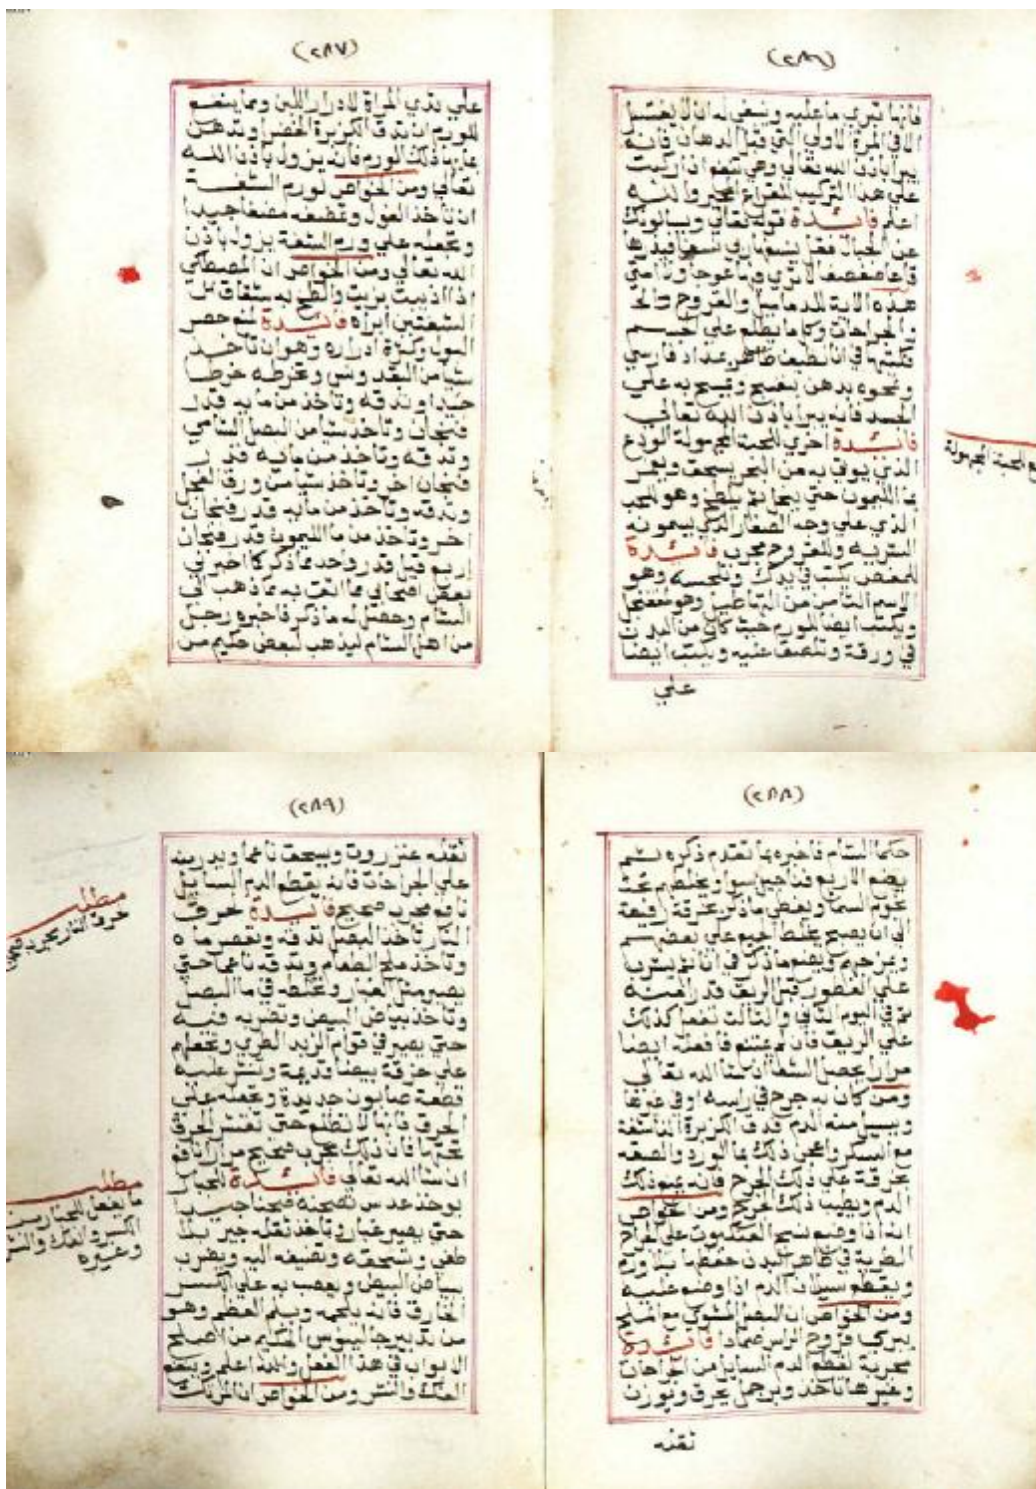 (٢٨٦)
فانها تبري ما عليه وينبغي له ان لا يغتسل
الا في المرة الاولي التي قبل الدهان فانه
يبرا باذن الله تعالي وهي تنفع ان ركبت
علي هذا التركيب للقراع المجير والله
اعلم فائدة قوله تعالي ويسالونك
عن الجبال فقل ينسفها ربي نسفا فيذرها
قاعا صفصفا لا تري فيها عوجا ولا امتي
هذه الاية للدماميل والقروح والحز
والجراحات وكلما يطلع علي الجسم
تكتبها في انا نظيف طاهر بمداد فارسي
وتمحوه بدهن بنفسج وتمسح به علي
الجسد فانه يبرا باذن الله تعالي
فائدة اخري للحبة المجهولة الودع
الذي يوتي به من البحر يسحق
بما الليمون حتي ثم يلطخ وهو
الذي علي وجه الصغار الذي يسمونه
وللقروح مجرب فائدة
للمغص يكتب في يدك وتلحسه وهو
الاسم الثامن من وهو
ويكتب ايضا للورم حيث كان من البدن
في ورقة وتلصق عليه ويكتب ايضا
علي
المحبة المجهولة
(٢٨٧)
علي ثدي المراة لادرار اللبن ومما ينفع
للورم ان تدق الكزبرة الخضرا وتدهن
بمايها ذلك الورم فانه يزول باذن الله
تعالي ومن الخواص لورم الشفة
ان تاخذ الفول وتمضغه مضغا جيدا
وتجعله علي ورم الشفة يزول باذن
الله تعالي ومن الخواص ان المصطكي
اذا اذيبت بزيت ولطخ به شقاق
الشفتين ابراه فائدة لمنع حصر
البول وكثرة ادراره وهو ان تاخذ
شيا من البقدونس وتخرطه خرطا
جيدا وتدقه وتاخذ من مايه قدر
فنجان وتاخذ شيا من البصل الشامي
وتدقه وتاخذ من مايه قدر
فنجان اخر وتاخذ شيا من ورق الفجل
وتدقه وتاخذ من مايه قدر فنجان
اخر وتاخذ من ما الليمون قدر فنجان
اربع قبل قدر واحد مما ذكر كما اخبرني
بعض اصحابي مما اتفق به لما ذهب الي
الشام وحصل له ما ذكر فاخبره رجل
من اهل الشام ليذهب لبعض حكيم من
(٢٨٨)
حكما الشام فاخبره بما تقدم ذكره ثم
يضع الاربع فناجين سوا ويخلطهم تحت
نجوم السما ويغطي ما ذكر بخرقة رفيعة
الي ان يصبح يخلط الجميع علي بعضهم
ويضع ما ذكر في انا ثم يشربها
علي الفطور قبل الريق قدر
ثم في اليوم الثاني والثالث تفعل كذلك
علي الريق فان لم فافعله ايضا
مرارا يحصل الشفا ان شا الله تعالي
ومن كان به جرح في راسه او في غيرها
ويسيل منه الدم فدق الكزبرة الناشفة
مع السكر واعجن ذلك بما الورد والصقه
بخرقة علي ذلك الجرح فانه يمنع ذلك
الدم ويطيب ذلك الجرح ومن الخواص
انه اذا وضع نسج العنكبوت علي القراح
الطرية في ظاهر البدن حفظها بلا ورم
ويقطع سيلان الدم اذا وضع عليه
ومن الخواص ان البصل المشوي مع الملح
يبري قروح الراس ضمادا فائدة
مجربة لقطع الدم السايل من الجراحات
وغيرها تاخذ يحرق ويوزن
ثقله
(٢٨٩)
ثقله عنزروت ويسحق ناعما ويدر منه
علي الجراحات فانه يقطع الدم السايل
نافع مجرب صحيح فائدة لحرق
النار تاخذ البصل تدقه وتعصر ماه
وتاخذ ملح الطعام وتدقه ناعما حتي
يصير مثل الغبار وتخلطه في ما البصل
وتاخذ بياض البيض وتضربه فيه
حتي يصير في قوام الزبد الطري وتجعلهم
علي خرقة بيضا قديمة وتنشر عليه
قطعة صابون جديدة وتجعله علي
الحرق فانها لا تطلع حتي تقشر الحرق
تحتها فان ذلك مجرب صحيح مرارا نافع
ان شا الله تعالي فائدة لجبار
يوخذ عدس تصحنه صحنا جيدا
حتي يصير غبار وتاخذ ثقله جير بلا
طفي وتسحقه وتضيفه اليه ويضرب
ببياض البيض ويعصب به علي الكسر
الخارق فانه يلحمه ويلم العظم وهو
من تدبير جالينوس الحكيم من اصلح
الابواب في هذا الفعل والله اعلم وينفع
الفك والنتر ومن الخواص ان المرتك
مطلب
حرق النار مجرب صحيح
مطلب
ما يفعل للجبار من
الكسر والفك والنتر
وغيره